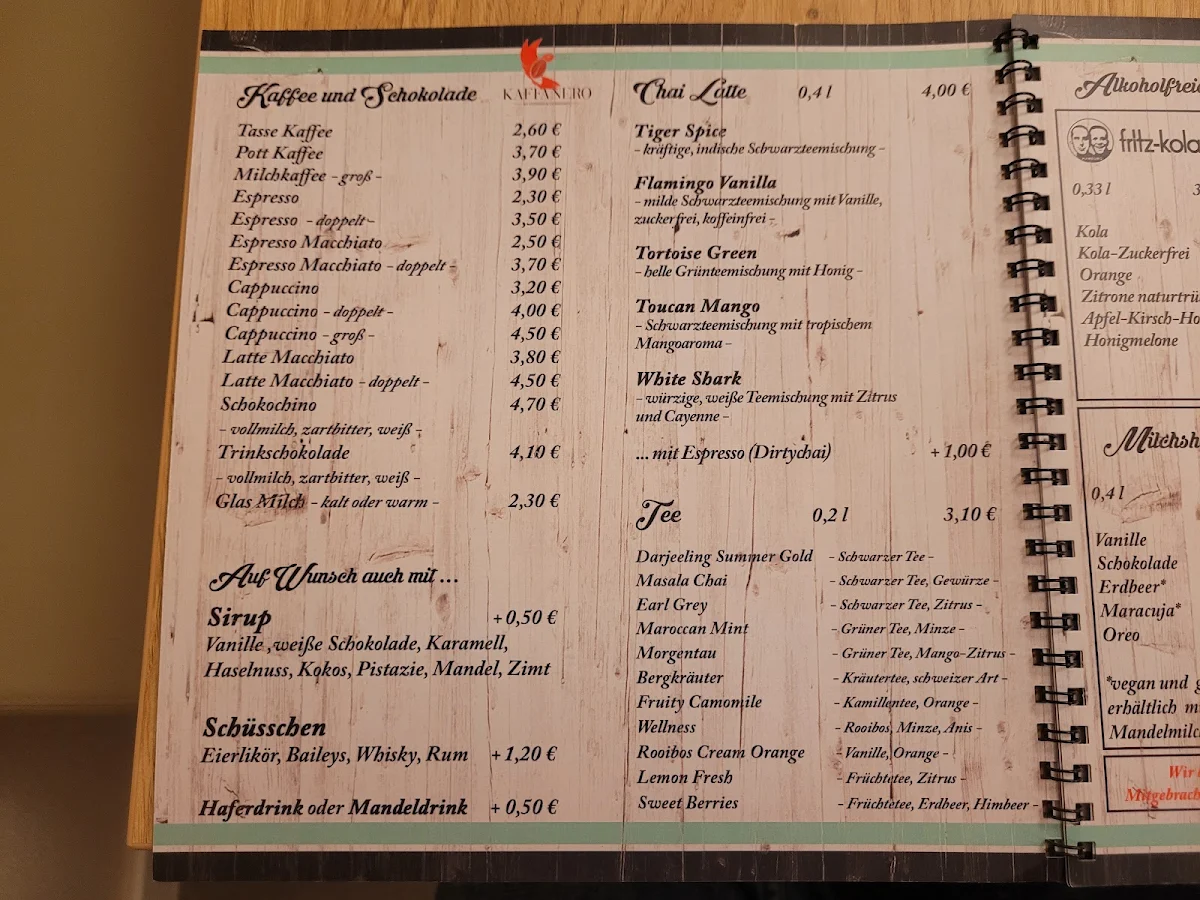 Kaffee und Schokolade
KAFFANERO
Tasse Kaffee 2,60 €
Pott Kaffee 3,70 €
Milchkaffee - groß - 3,90 €
Espresso 2,30 €
Espresso - doppelt - 3,50 €
Espresso Macchiato 2,50 €
Espresso Macchiato - doppelt - 3,70 €
Cappuccino 3,20 €
Cappuccino - doppelt - 4,00 €
Cappuccino - groß - 4,50 €
Latte Macchiato 3,80 €
Latte Macchiato - doppelt - 4,50 €
Schokochino 4,70 €
- vollmilch, zartbitter, weiß -
Trinkschokolade 4,10 €
- vollmilch, zartbitter, weiß -
Glas Milch - kalt oder warm - 2,30 €
Auf Wunsch auch mit ...
Sirup +0,50 €
Vanille ,weiße Schokolade, Karamell,
Haselnuss, Kokos, Pistazie, Mandel, Zimt
Schüsschen
Eierlikör, Baileys, Whisky, Rum +1,20 €
Haferdrink oder Mandeldrink + 0,50 €
Chai Latte 0,4 l 4,00 €
Tiger Spice
- kräftige, indische Schwarzteemischung -
Flamingo Vanilla
- milde Schwarzteemischung mit Vanille,
zuckerfrei, koffeinfrei -
Tortoise Green
- helle Grünteemischung mit Honig -
Toucan Mango
- Schwarzteemischung mit tropischem
Mangoaroma -
White Shark
- würzige, weiße Teemischung mit Zitrus
und Cayenne -
... mit Espresso (Dirtychai) + 1,00 €
Tee 0,2 l 3,10 €
Darjeeling Summer Gold - Schwarzer Tee -
Masala Chai - Schwarzer Tee, Gewürze -
Earl Grey - Schwarzer Tee, Zitrus -
Maroccan Mint - Grüner Tee, Minze -
Morgentau - Grüner Tee, Mango-Zitrus -
Bergkräuter - Kräutertee, schweizer Art -
Fruity Camomile - Kamillentee, Orange -
Wellness - Rooibos, Minze, Anis -
Rooibos Cream Orange - Vanille, Orange -
Lemon Fresh - Früchtetee, Zitrus -
Sweet Berries - Früchtetee, Erdbeer, Himbeer -
Alkoholfrei
fritz-kola
0,33 l 3
Kola
Kola-Zuckerfrei
Orange
Zitrone naturtrü
Apfel-Kirsch-Ho
Honigmelone
Milchsh
0,4 l
Vanille
Schokolade
Erdbeer*
Maracuja*
Oreo
*vegan und g
erhältlich m
Mandelmilc
Wir
Mitgebrach